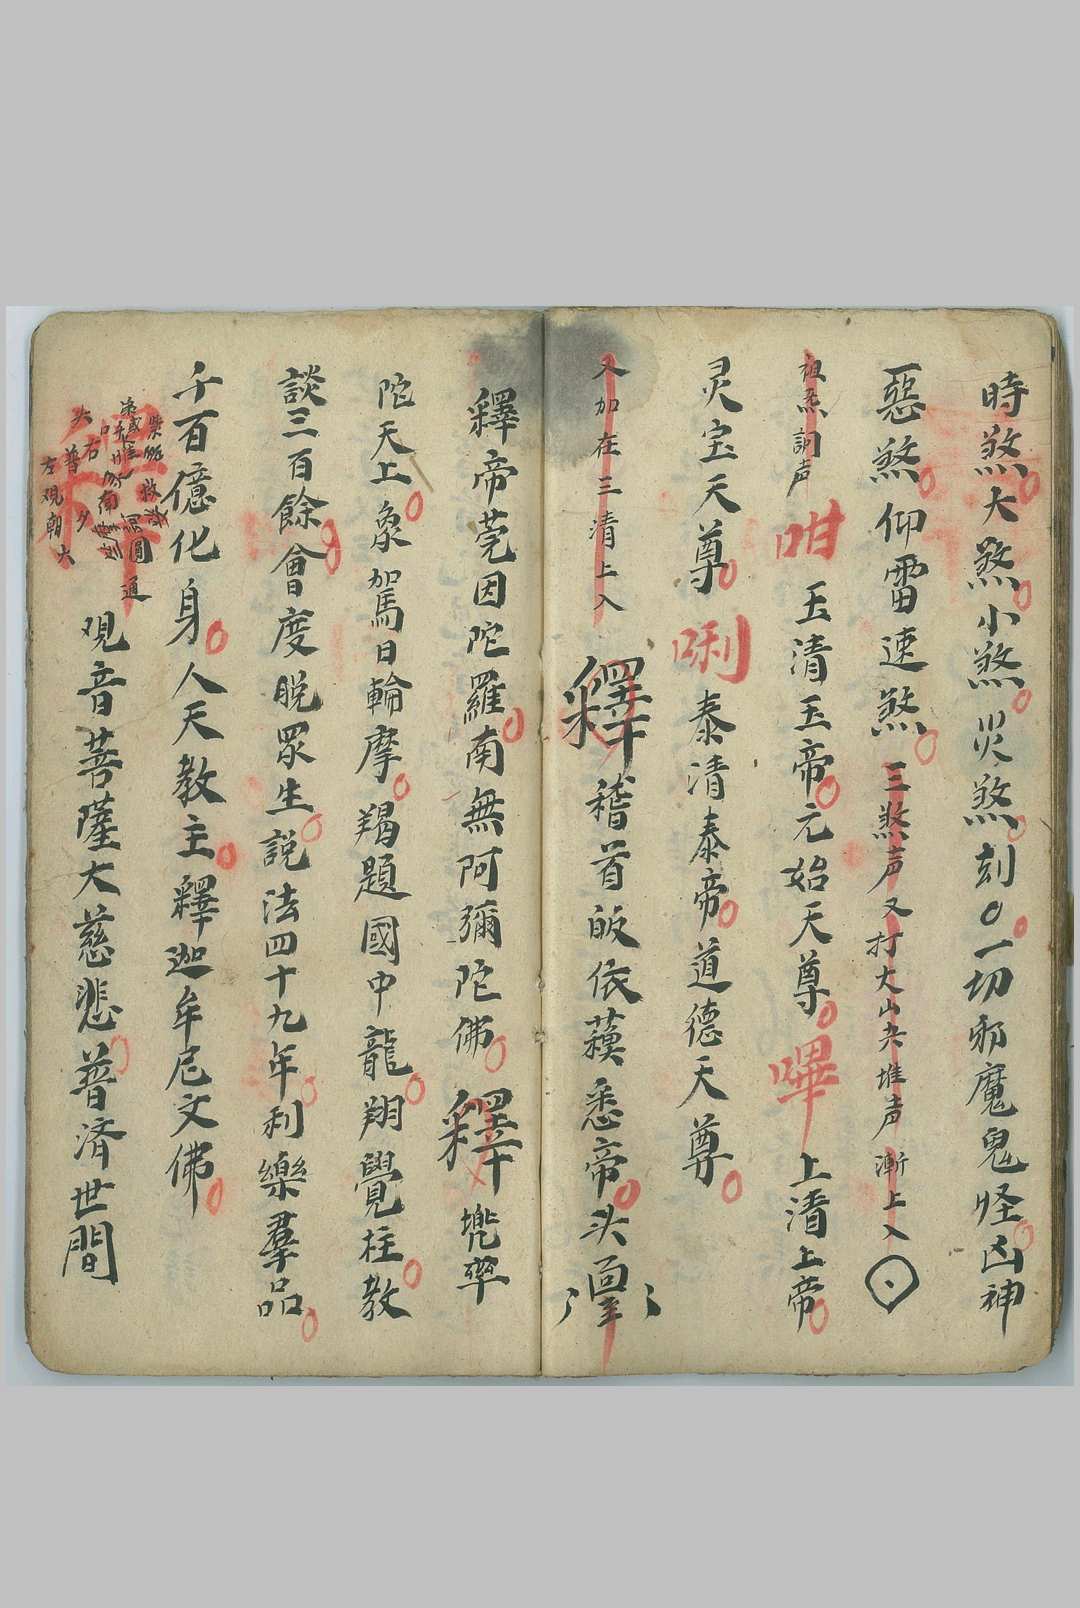 時煞大煞小煞災煞刻〇一切邪魔鬼怪凶神
惡煞仰雷速煞三煞声又打大山夬堆声漸上入
祖煞詞声咁玉清玉帝元始天尊嗶上清上帝
灵宝天尊唎泰清泰帝道德天尊
又加在三清上入釋稽首皈依蘓悉帝头面
釋帝莞因陀羅南無阿彌陀佛釋兠率
陀天上象駕日輪摩羯題國中龍翔覺柱教
談三百餘會度脱眾生説法四十九年利樂羣品
千百億化身人天教主釋迦牟尼文佛
紫 救
南 圓通
右夕
头普
左观朝大
观音菩薩大慈悲普済世間